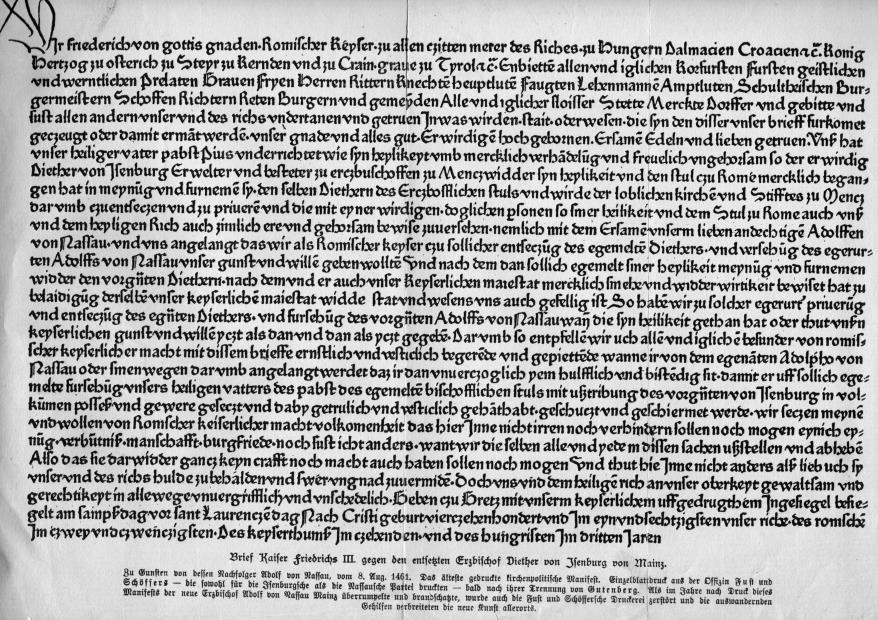 Wir Friederich von gottis gnaden. Romischer Keyser. zu allen czitten merer des Riches. zu Hungern Dalmacien Croacien ⁊ c̄. Konig
Hertzog zu osterich zu Steyr zu Kernden vnd zu Crain. graue zu Tyrol ⁊ c̄. Enbiettē allen vnd iglichen Korfursten Fursten geistlichen
vnd werntlichen Prelaten Grauen Fryen Herren Rittern Knechtē heuptlutē Faugten Lehenmannē Amptluten, Schultheischen Bur-
germeistern Schoffen Richtern Reten Burgern vnd gemeynden Alle vnd iglicher sloisser Stette Merckte Dorffer vnd gebitte vnd
sust allen andern vnser vnd des richs vndertanen vnd getruen Jn was wirden. stait. oder wesen. die syn den disser vnser brieff furkomet
geczeugt oder damit ermāt werdē. vnser gnade vnd alles gut. Erwirdigē hochgebornen. Ersamē Edeln vnd lieben getruen. Vnß hat
vnser heiliger vater pabst Pius vnderrichtet wie syn heylikeyt vmb mercklich verhādelūg vnd freuelich vngehorsam so der erwirdig
Diether von Jsenburg Erwelter vnd bestetter zu erczbuschoffen zu Mencz widder syn heylikeit vnd den stul czu Rome mercklich began-
gen hat in meynūg vnd furnemē sy. den selben Diethern des Erczbosflichen stuls vnd wirde der loblichen kirchē vnd Stifftes zu Mencz
dar vmb czu entseczen vnd zu priuerē vnd die mit eyner wirdigen. doglichen psonen so siner heilikeit vnd dem Stul zu Rome auch vnß
vnd dem heyligen Rich auch zimlich ere vnd gehorsam bewise zuuersehen. nemlich mit dem Ersamē vnserm lieben andechtigē Adolffen
von Nassau. vnd vns angelangt das wir als Romischer keyser czu sollicher entseczūg des egemeltē Diethers. vnd versehūg des egerur-
ten Adolffs von Nassau vnser gunst vnd willē geben wolltē Vnd nach dem dan sollich egemelt siner heylikeit meynūg vnd furnemen
widder den vorgūten Diethern. nach dem vnd er auch vnser keyserlichen maiestat mercklich smehe vnd widderwirtikeit bewiset hat zu
belaidigūg derselbē vnser keyserlichē maiestat widde stat vnd wesens vns auch gefellig ist. So habē wir zu solcher egerurt priuerūg
vnd entseczūg des egūten Diethers. vnd fursehūg des vorgūten Adolffs von Nassau wan die syn heilikeit gethan hat oder thut vnßn
keyserlichen gunst vnd willē yczt als dan vnd dan als yczt gegebē. Dar vmb so entpfelē wir uch allē vnd iglichē besunder von romis-
scher keyserlicher macht mit dissem brieffe ernstlich vnd vestidich begerēde vnd gepiettēde wanne ir von dem egenāten Adolpho von
Nassau oder sinen wegen dar vmb angelangt werdet daz ir dan vnuerczoglich yem hulfflich vnd bistēdig sit. damit er uff sollich ege-
melte fursehūg vnsers heiligen vatters des pabst des egemeltē bischofflichen stuls mit vßtribung des vorgūten von Jsenburg in vol-
kūmen posseß vnd gewere geseczt vnd daby getrulich vnd vestidich gehāthabt. geschuczt vnd geschiermet werde. wir seczen meynē
vnd wollen von Romscher keiserlicher macht volkomenheit das hier Jnne nicht irren noch verhindern sollen noch mogen eynich ey-
nūg. verbūtnīß. manschafft. burgfriede. noch sust icht anders. want wir die selben alle vnd yedem dissen sachen vßstellen vnd abhebē
Also das sie dar widder gancz keyn crafft noch macht auch haben sollen noch mogen Vnd thut hie Jnne nicht anders alß lieb uch sy
vnser vnd des richs hulde zu behalden vnd swer vngnad zuuermidē. Doch vns vnd dem heiligē rich an vnser oberkeyt gewaltsam vnd
gerechtikeyt in allewege vnuergriflich vnd vnschedelich. Geben czu Gretz mit vnserm keyserlichem uffgedrugthem Jngesiegel besie-
gelt am sampßdag vor sant Laurenczē dag Nach Cristi geburt vierczehenhondert vnd Jm eyn vnd sechtzigsten vnser riche. des romischē
Jm czwey vnd czwenczigsten. Des keyserthumß Jm czehenden. vnd des hungristen Jm dritten Jaren
Brief Kaiser Friedrichs III. gegen den entsetzten Erzbischof Diether von Isenburg von Mainz.
Zu Gunsten von dessen Nachfolger Adolf von Nassau, vom 8. Aug. 1461. Das älteste gedruckte kirchenpolitische Manifest. Einzelblattdruck aus der Offizin Fust und
Schöffers — die sowohl für die Isenburgsche als die Nassausche Partei druckten — bald nach ihrer Trennung von Gutenberg. Als im Jahre nach Druck dieses
Manifests der neue Erzbischof Adolf von Nassau Mainz überrumpelte und brandschatzte, wurde auch die Fust und Schöffersche Druckerei zerstört und die auswandernden
Gehilfen verbreiteten die neue Kunst allerorts.